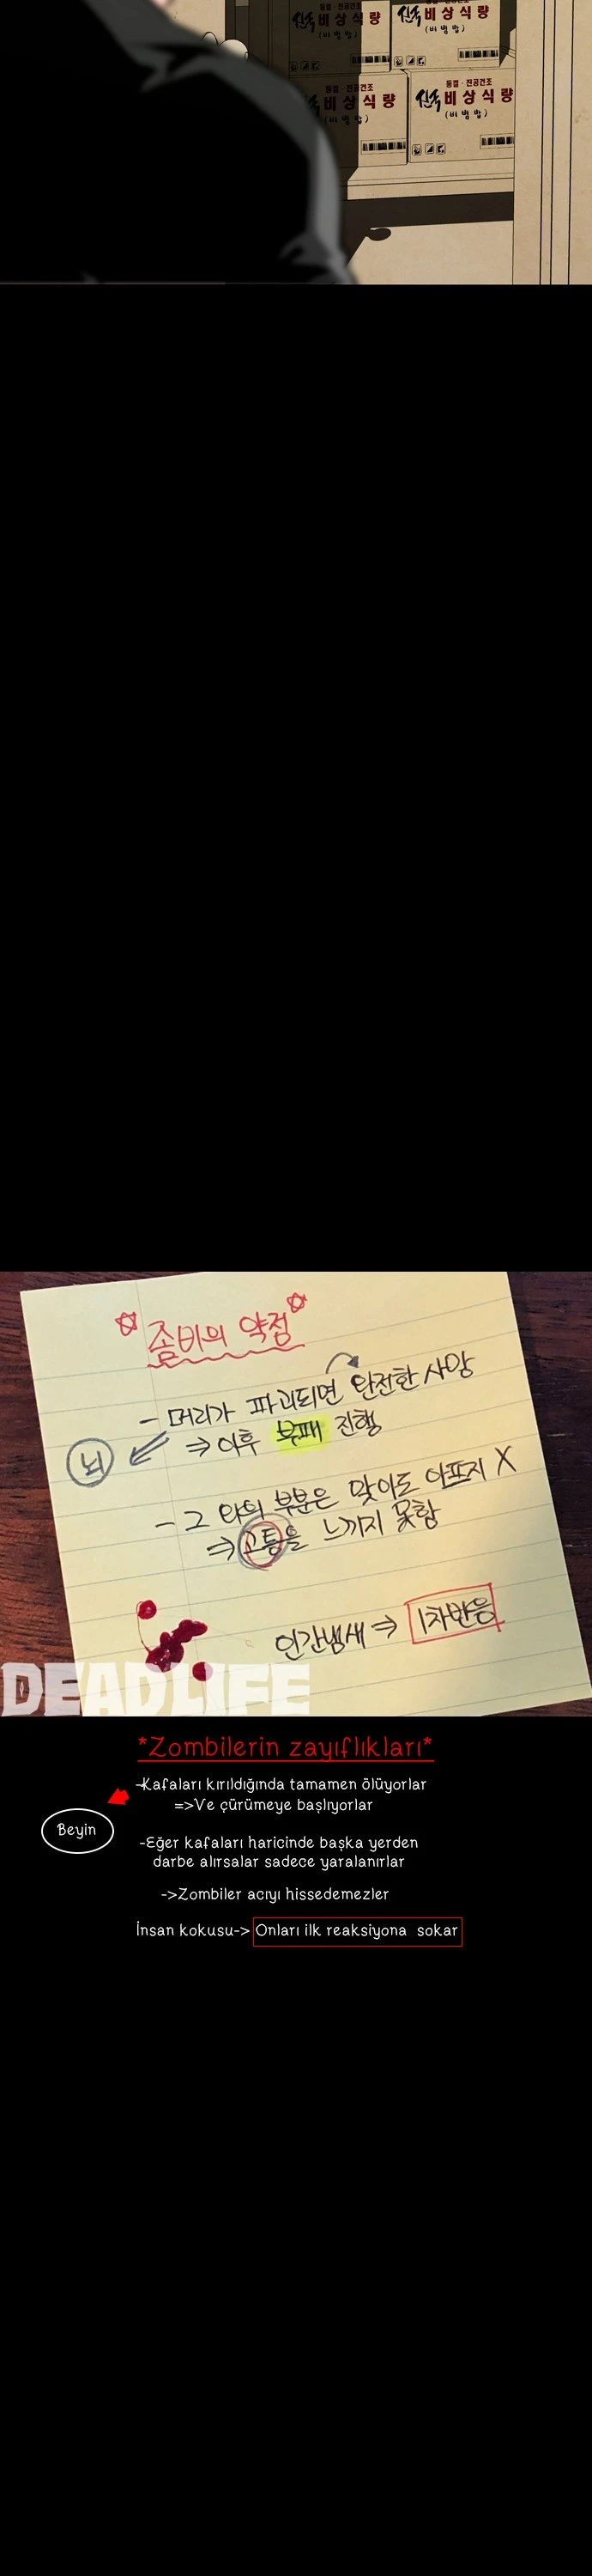 동결·진공건조
비상식량
(비빔밥)
동결·진공건조
전투 비상식량
(비빔밥)
동결·진공건조
비상식량
(비빔밥)
동결·진공건조
전투 비상식량
(비빔밥)
좀비의 약점
- 머리가 파괴되면 완전한 사망
⇒ 이후 부패 진행
뇌
- 그 외의 부분은 맞아도 아프지 X
⇒ 고통을 느끼지 못함
인간냄새 ⇒ 1차반응
DEADLIFE
*Zombilerin zayıflıkları*
-Kafaları kırıldığında tamamen ölüyorlar
=>Ve çürümeye başlıyorlar
Beyin
-Eğer kafaları haricinde başka yerden
darbe alırsalar sadece yaralanırlar
->Zombiler acıyı hissedemezler
İnsan kokusu-> Onları ilk reaksiyona sokar